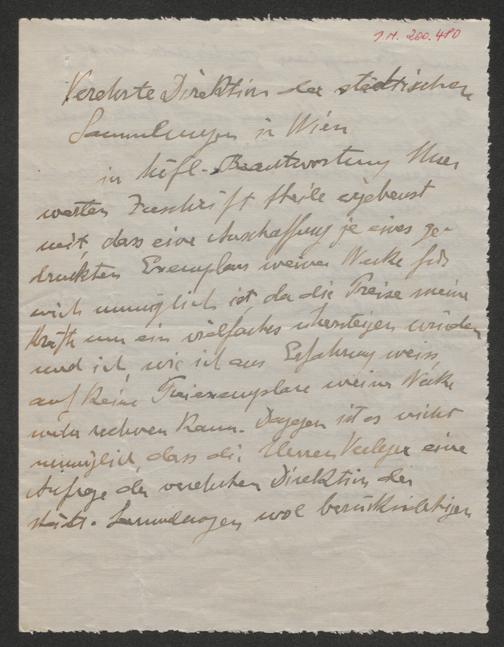 J.N. 200.480
Verehrte Direktion der städtischen
Sammlungen in Wien
in höfl. Beantwortung Ihrer
werten Zuschrift theile ergebenst
mit, dass eine Anschaffung je eines ge-
druckten Exemplars meiner Werke für
mich unmöglich ist, da die Preise meine
Kräfte um ein vielfaches übersteigen würden
und ich, wie ich aus Erfahrung weiss,
auf keine Freiexemplare meiner Werke
mehr rechnen kann. Dagegen ist es nicht
unmöglich, dass die Herren Verleger eine
Anfrage der verehrten Direktion der
städt. Sammlungen wol berücksichtigen